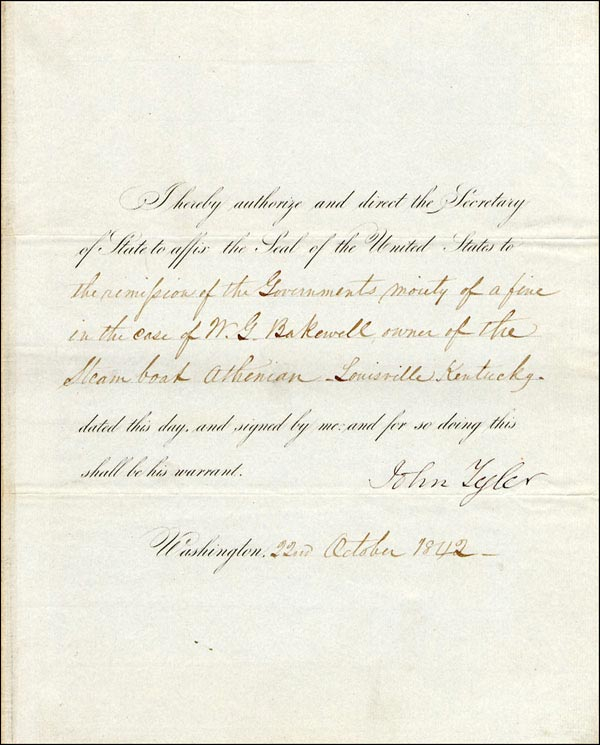 I hereby authorize and direct the Secretary
of State to affix the Seal of the United States to
the remission of the Governments moity of a fine
in the case of W. G. Bakewell owner of the
Steam boat Athenian - Louisville Kentucky -
dated this day, and signed by me: and for so doing this
shall be his warrant.
John Tyler
Washington, 22nd October 1842 -